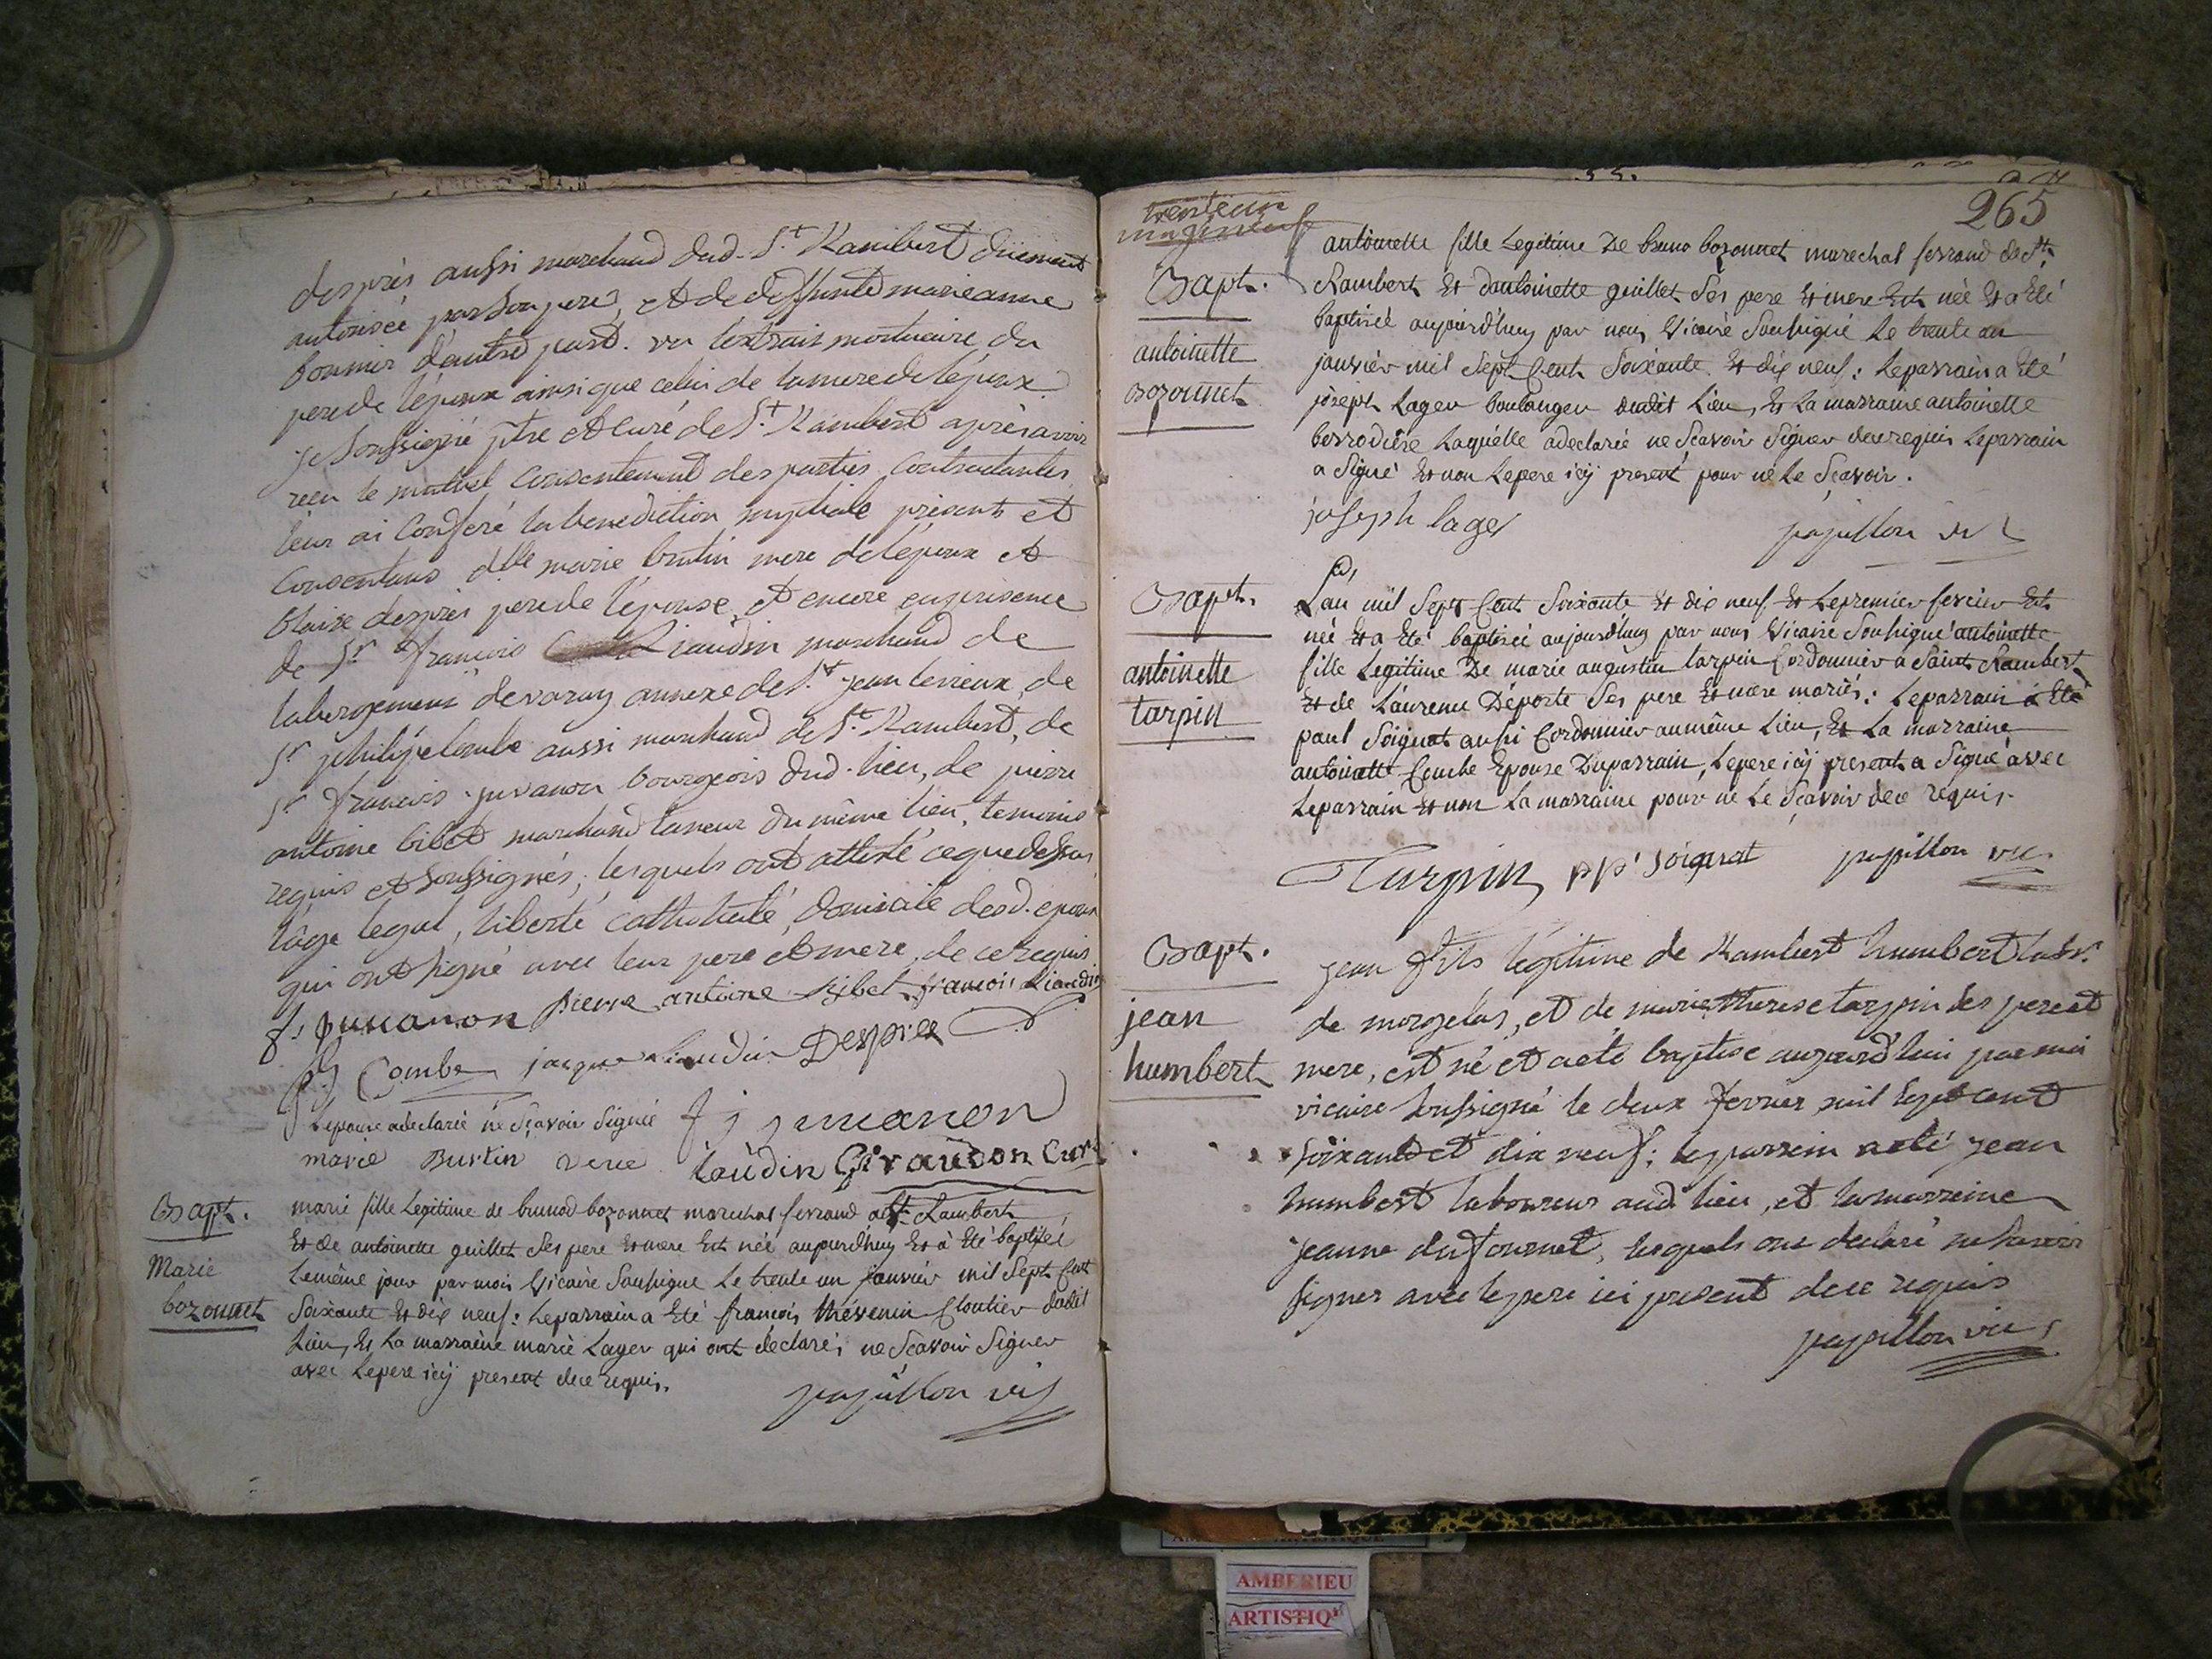 desprès aussi marchand dud. St Rambert düement
autorisée par son pere, et de deffunte marieanne
bonnier d'autre part. vu l'extrait mortuaire du
pere de l'époux ainsi que celui de la mere de l'épouse
je soussigné ptre et curé de St Rambert après avoir
reçu le mutuel consentement des parties contractantes
leur ai conferé la benediction nuptiale présents et
consentans dlle marie burtin mere de l'époux et
blaise desprès pere de l'épouse, et encore en présence
de Sr françois Liaudin marchand de
labergement de varay annexe de St jean le vieux, de
Sr philipe combe aussi marchand de St Rambert, de
Sr francois juvanon bourgeois dud. lieu, de pierre
antoine bibet marchand taneur du même lieu, temoins
requis et soussignés, lesquels ont attesté ce que dessus
l'âge legal, liberté catholicité, domicile desd. epoux
qui ont signé avec leur pere et mere, de ce requis
f. juvanon pierre antoine bibet françois Liaudin
Ph Combe jacque Liaudin Desprès
l'epouse a declaré ne sçavoir signée f j juvanon
marie Burtin veve laudin Giraudon Curé
Bapt.
Marie
bozonnet
marie fille Legitime de brunod bozonnet marechal ferrand a St Rambert
Et de antoinette guillet ses pere et mere Est néé aujourd'huy Et à Eté baptiséé
le même jour par mois Vicaire Soussigne Le trente un janvier mil Sept Cent
Soixante Et dix neuf: Le parrain a Eté françois thévenin Cloutier dudit
Lieu, Et La marraine marie Lager qui ont declaré, ne Scavoir Signer
avec Le pere icÿ present dece requis.
papillon vic
265
trente un
Bapt.
antoinette
bozonnet
antoinette fille Legitime De bruno bozonnet marechal ferrand de St
Rambert Et d'antoinette guillet Ses pere Et mere Est néé Et a Eté
baptiséé aujourd'huy par nous Vicaire Soussigné Le trente un
janvier mil Sept Cent Soixante Et dix neuf: Le parrain a Eté
joseph Lager boulanger dudit Lieu, Et La marraine antoinette
berrodiere Laquelle a declaréé ne Scavoir Signer de ce requis Le parrain
a Signé Et non Le pere icÿ present pour ne Le Sçavoir.
joseph lager papillon vic
Bapt.
antoinette
tarpin
Lan mil Sept Cent Soixante Et dix neuf Et Le premier fevrier Est
néé Et a Eté baptiséé aujourd'huy par nous Vicaire Soussigné antoinette
fille Legitime De marie augustin tarpin Cordonnier a Saint Rambert
Et de Laurence Déporte Ses pere Et mere mariés: Le parrain a Eté
paul Soignat aussi Cordonnier au même Lieu, Et La marraine
antoinette Couche Epouse Du parrain, Le pere icÿ present a Signé avec
Le parrain Et non La marraine pour ne Le Sçavoir de ce requis.
Tarpin pp' soignat papillon vic.
Bapt.
jean
humbert
jean fils légitime de Rambert humbert labr.
de morgelas, et de marie therese tarpin ses pere et
mere, est né et a eté baptisé aujourd'hui par moi
vicaire soussigné le deux fevrier mil sept cent
soixante et dix neuf: le parrein a eté jean
humbert laboureur aud. lieu, et la marreine
jeanne dufournet, lesquels ont declaré ne savoir
signer avec le pere ici present de ce requis
papillon vic.
AMBERIEU
ARTISTIQ